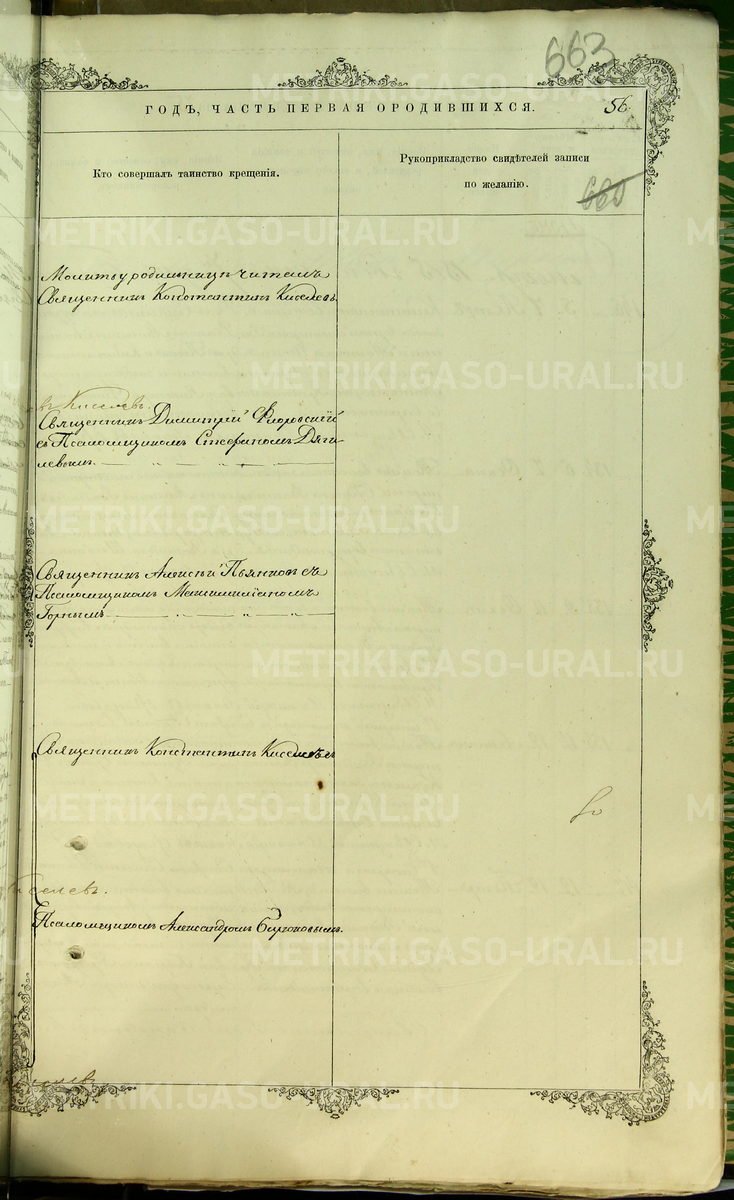 663
ГОДЪ, ЧАСТЬ ПЕРВАЯ О РОДИВШИХСЯ.
56.
Кто совершалъ таинство крещенія.
Рукоприкладство свидѣтелей записи
по желанію.
660
Молитву родильницѣ читалъ
Священникъ Константинъ Киселевъ.
Киселевъ.
Священникъ Димитрій Флоровскій
съ Псаломщикомъ Стефаномъ Дяги-
левымъ.
Священникъ Алексѣй Пьянковъ съ
Псаломщикомъ Максимиліаномъ
Горнымъ
Священникъ Константинъ Киселевъ съ
Киселевъ.
Псаломщикомъ Александромъ
METRIKI.GASO-URAL.RU